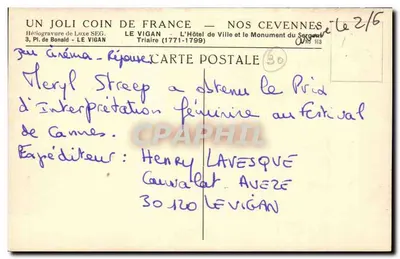 UN JOLI COIN DE FRANCE — NOS CEVENNES
Héliogravure de Luxe SEG.
3, Pl. de Bonald - LE VIGAN
LE VIGAN - L'Hôtel de Ville et le Monument du Sergent
Triaire (1771-1799)
le 2/6
CARTE POSTALE
30
Jeu Cinéma - Réponse
Meryl Streep a obtenu le Prix
d'Interprétation féminine au Festival
de Cannes.
Expéditeur : Henry LAVESQUE
Cauvalat - AVEZE
30120 LE VIGAN
CPAPHIL